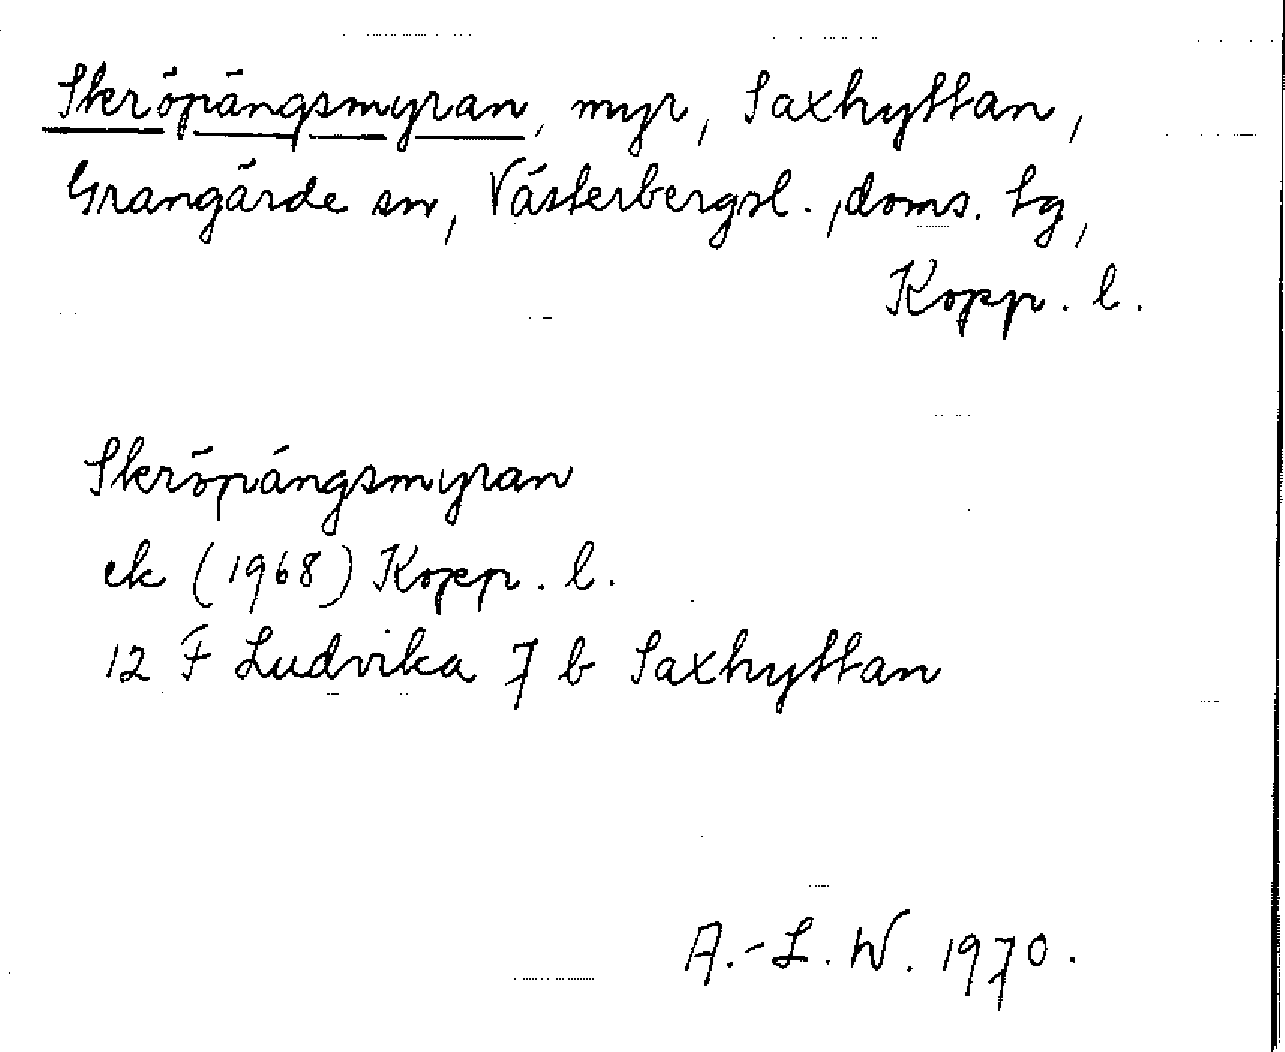 Skröpängsmyran, myr, Saxhyttan,
Grangärde sn, Västerbergsl., doms. tg,
Kopp. l.
Skröpängsmyran
ek (1968) Kopp. l.
12 F Ludvika 7 b Saxhyttan
A.-L. W. 1970.